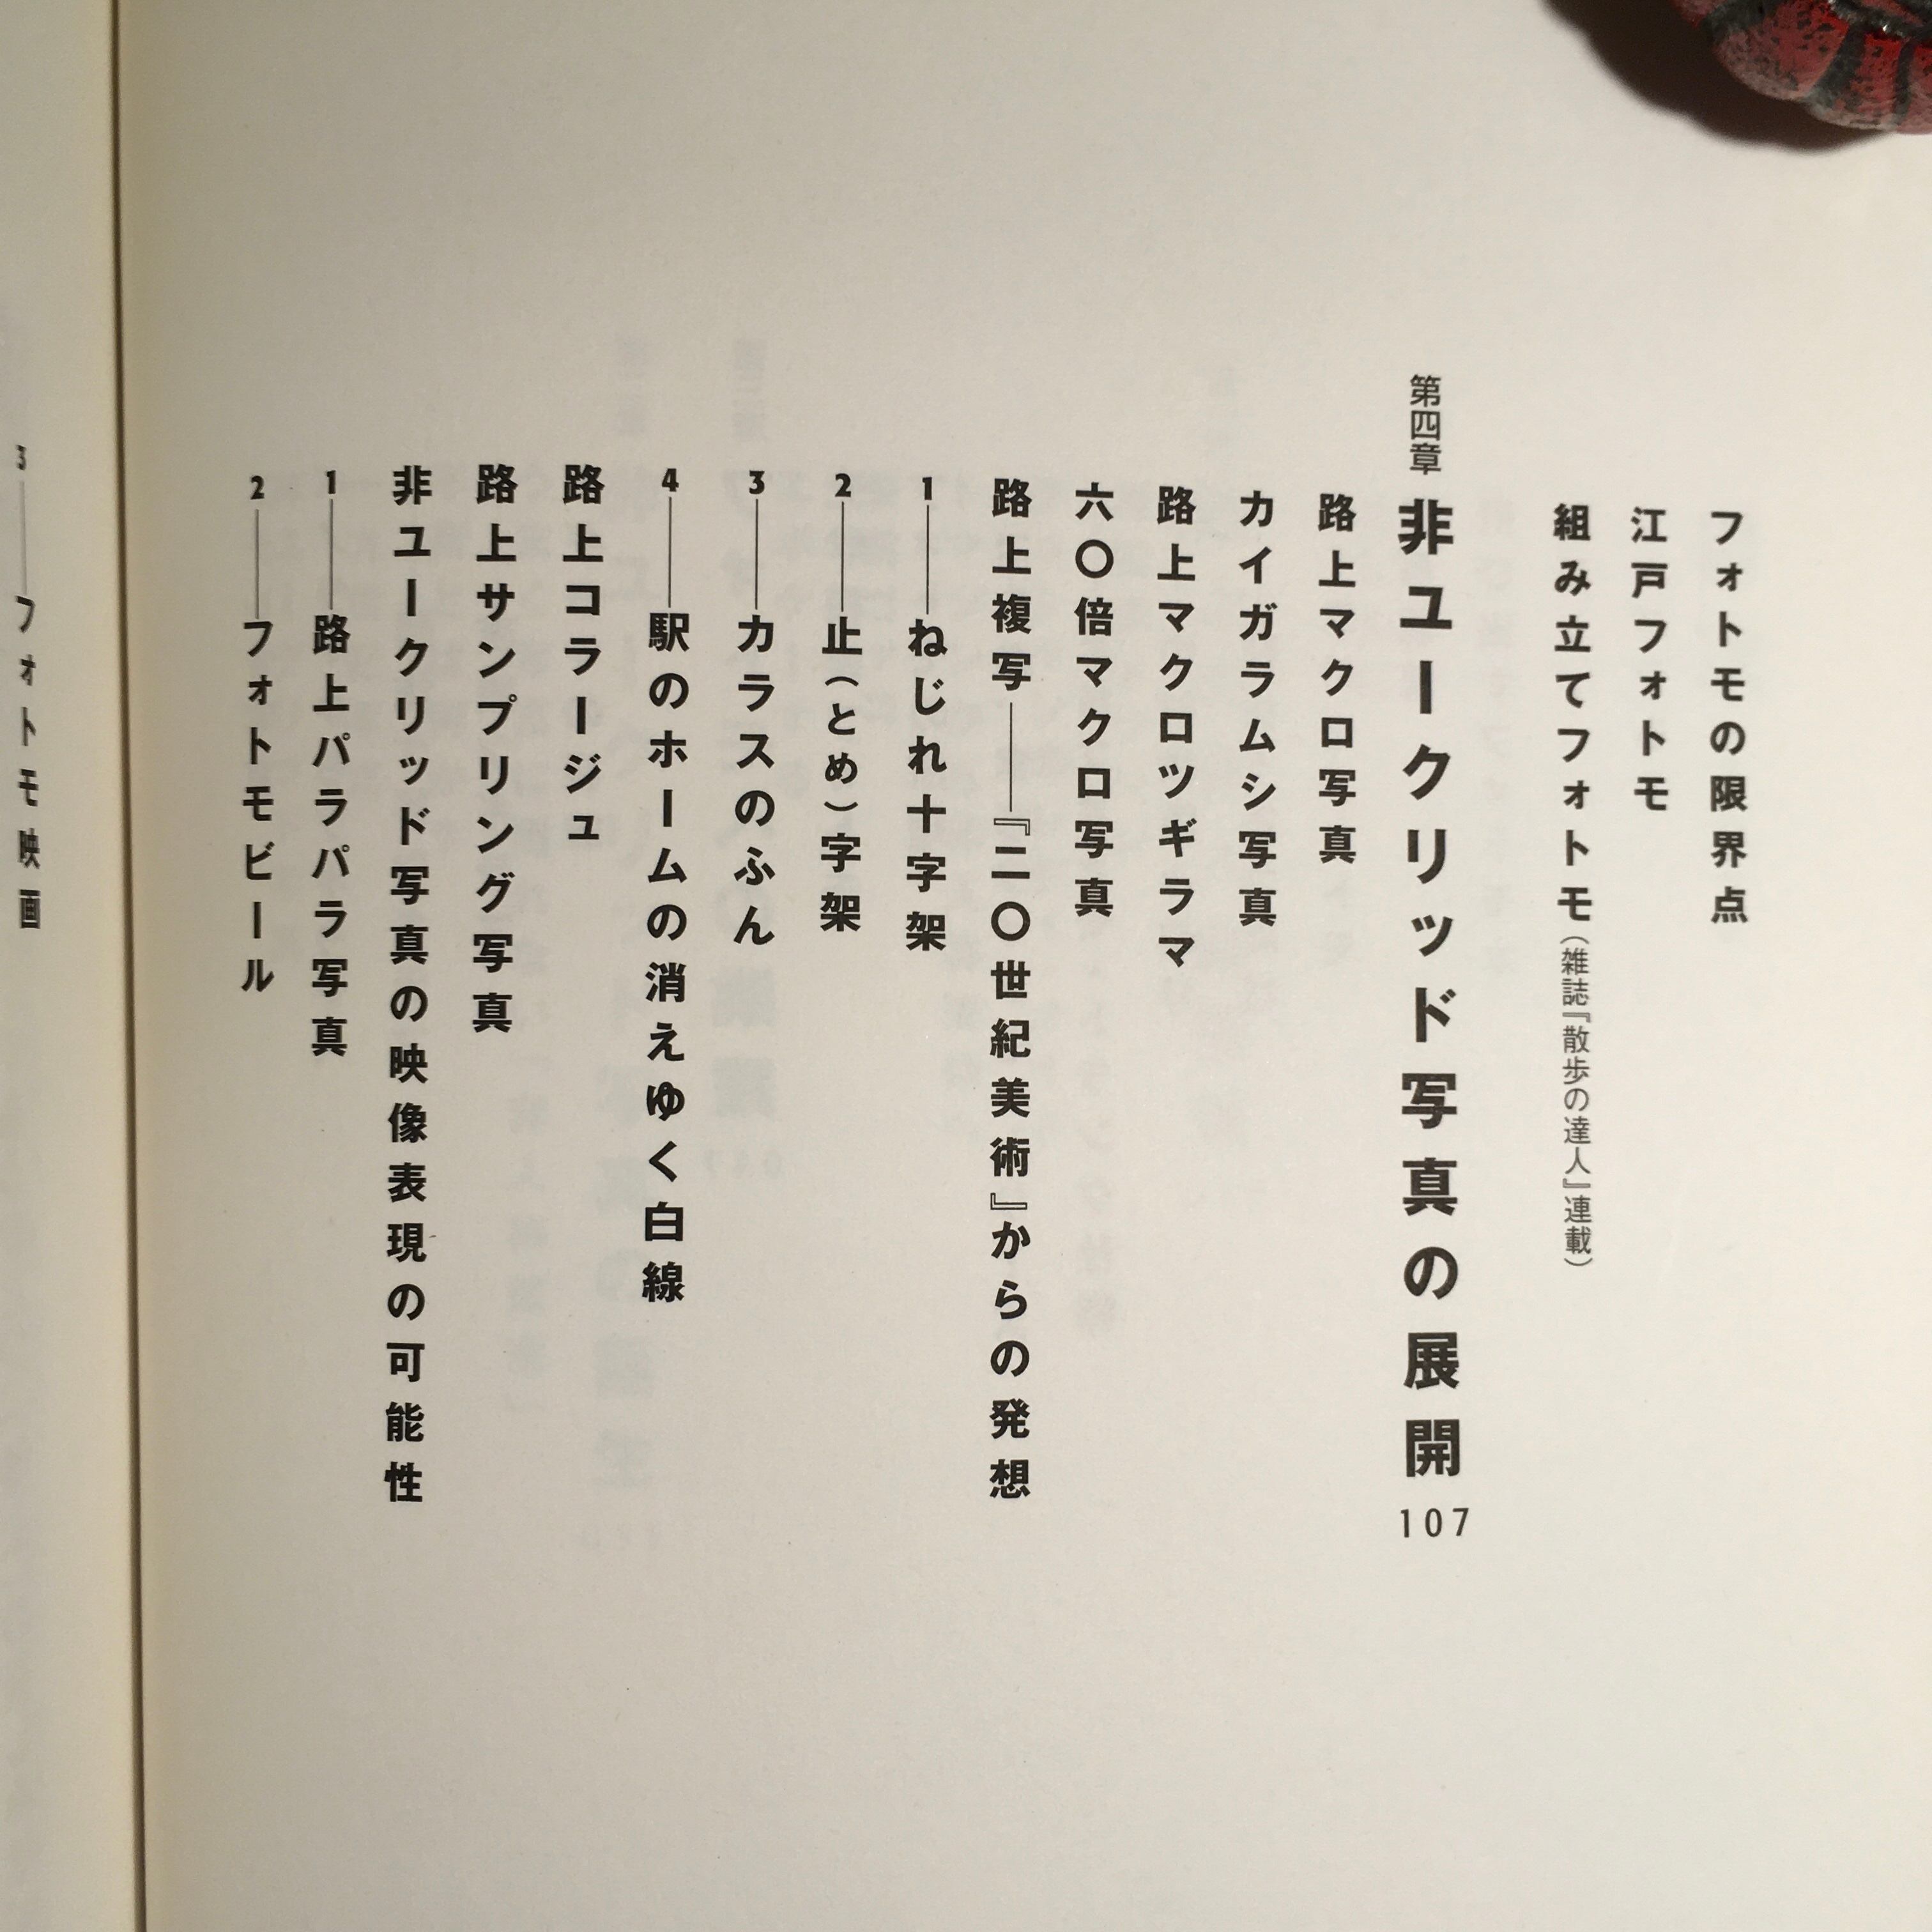 フォトモの限界点
江戸フォトモ
組み立てフォトモ（雑誌『散歩の達人』連載）
第四章 非ユークリッド写真の展開 107
路上マクロ写真
カイガラムシ写真
路上マクロツギラマ
六〇倍マクロ写真
路上複写――『二〇世紀美術』からの発想
1――ねじれ十字架
2――止（とめ）字架
3――カラスのふん
4――駅のホームの消えゆく白線
路上コラージュ
路上サンプリング写真
非ユークリッド写真の映像表現の可能性
1――路上パラパラ写真
2――フォトモビール
3――フォトモ映画